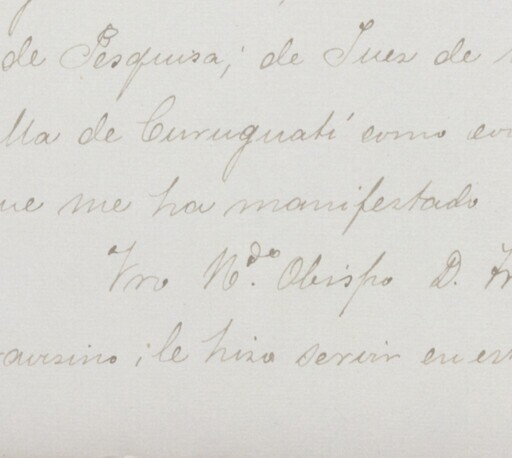 de Pesquisa; de Juez de
lla de Curuguatí como
ue me ha manifestado
Vro R.do Obispo D. Fr
; le hizo servir en es